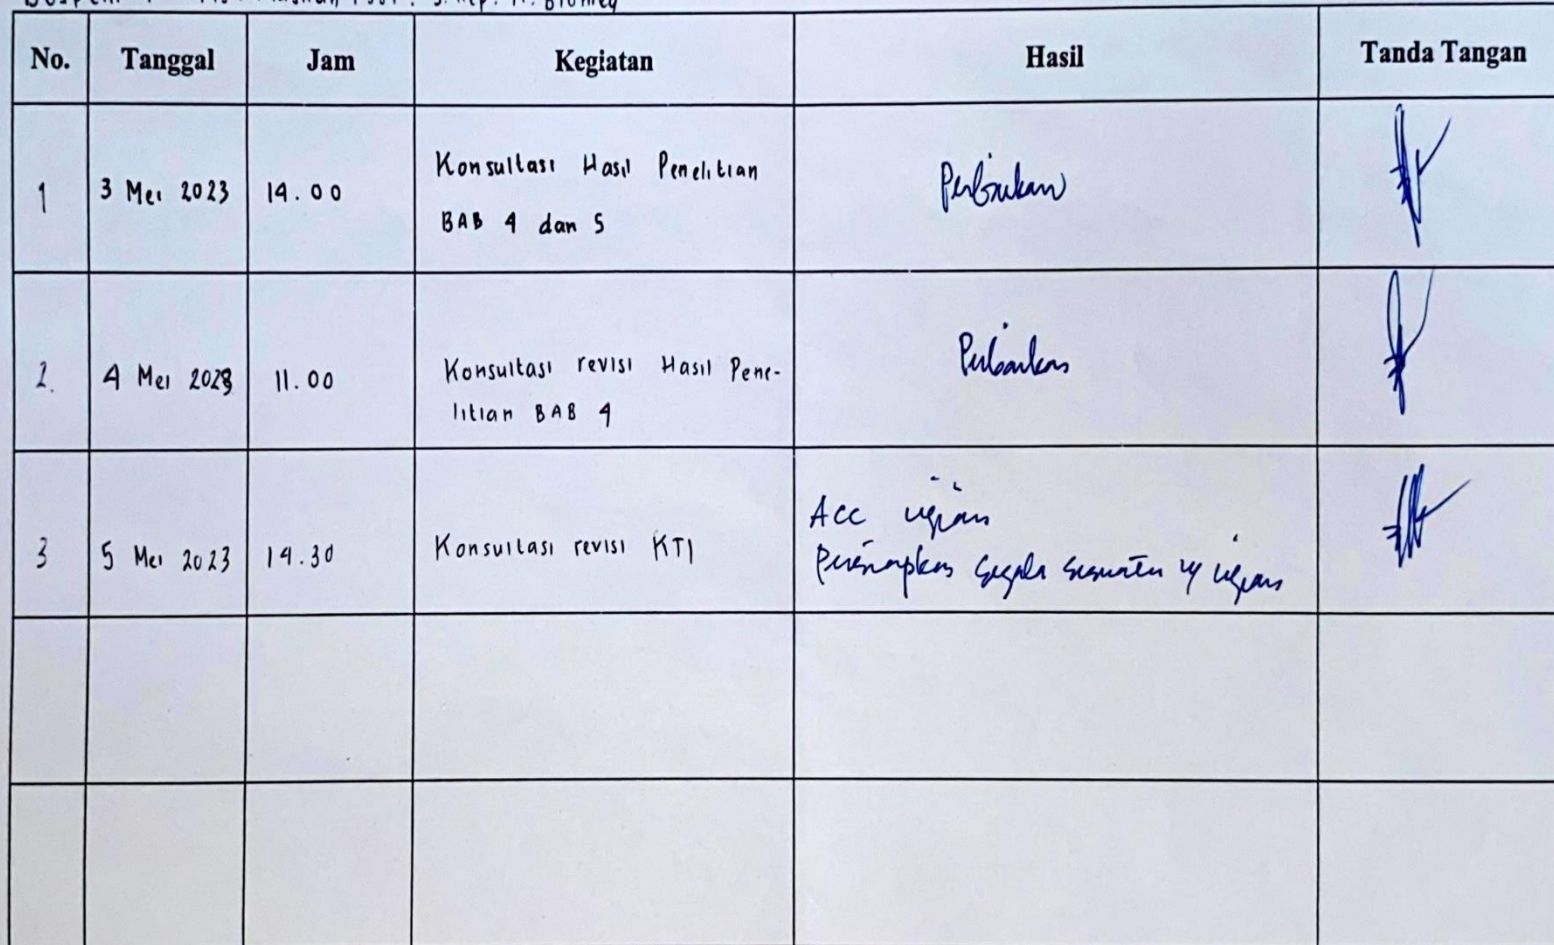 No. Tanggal Jam Kegiatan Hasil Tanda Tangan
1 3 Mei 2023 14.00 Konsultasi Hasil Penelitian Perbaikan
BAB 4 dan 5
2. 4 Mei 2023 11.00 Konsultasi revisi Hasil Pene- Perbaikan
litian BAB 4
3 5 Mei 2023 14.30 Konsultasi revisi KTI Acc ujian
Persiapkan segala sesuatu u/ ujian